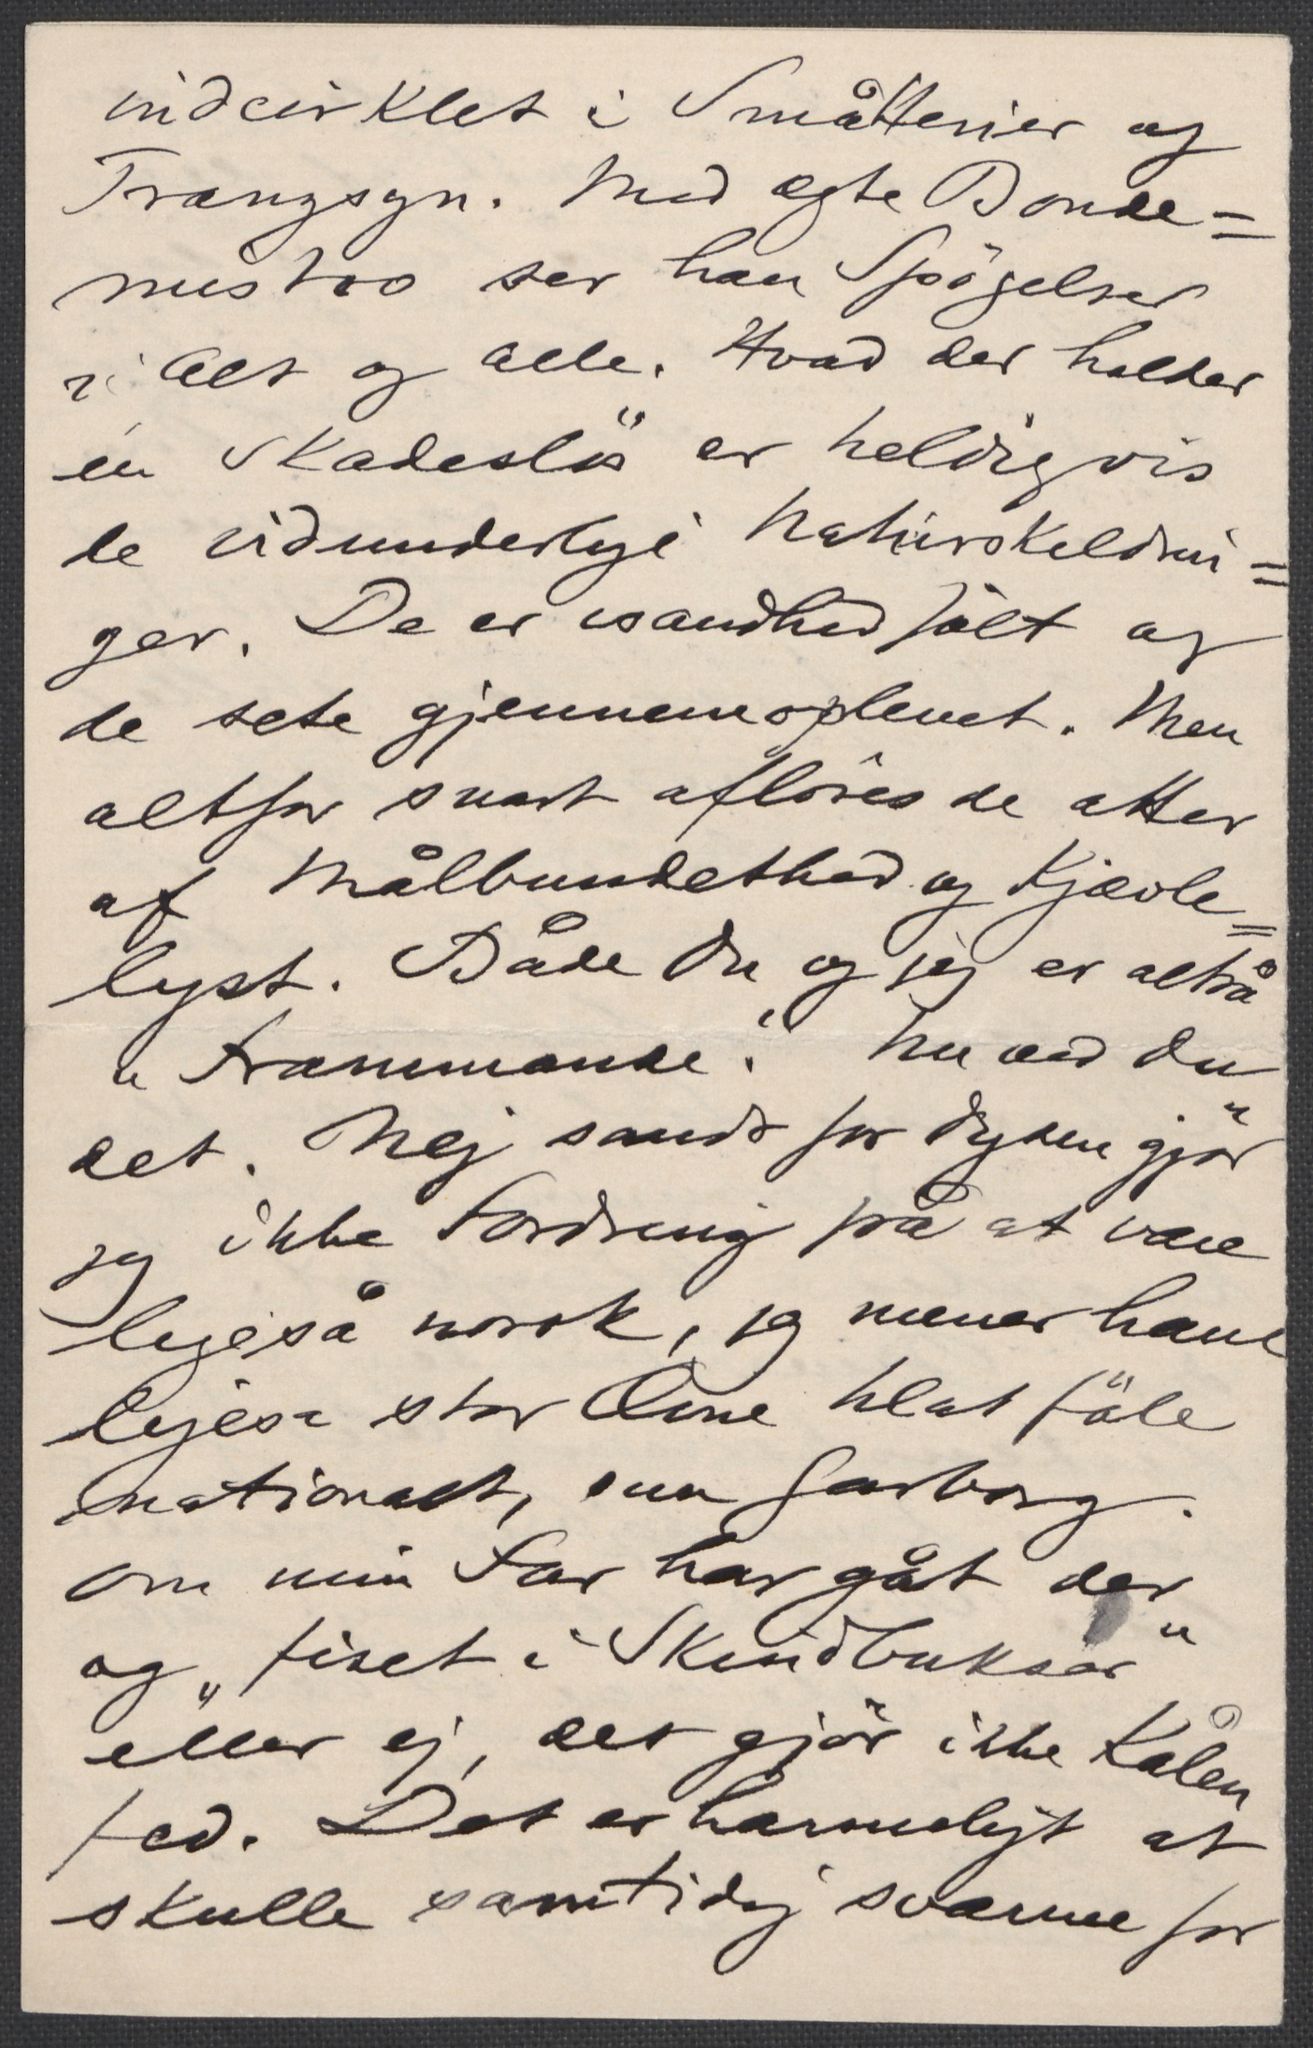 indcirklet i Småtterier og
Trangsyn. Med ægte Bonde=
mistro ser han Spögelser
i Alt og alle. Hvad der holder
én skadeslös er heldigvis
de vidunderlige Naturskildrin=
ger. De er isandhed fölt og
de sete gjennemoplevet. Men
altfor snart aflöses de atter
af Målbundethed og Kjævle=
lyst. Både Du og jeg er altså
"frammande". Nu ved Du
det. Nej sandt for Dyden gjör
jeg ikke Fordring på at være
ligeså norsk, jeg mener have
ligeså stor Evne til at föle
nationalt, som Garborg.
Om min Far har gåt der
og "fiset i Skindbukser"
eller ej, det gjör ikke Kålen
fed. Det er harmeligt at
skulle samtidig sværme for